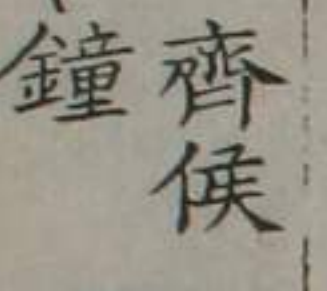 齊侯
鐘